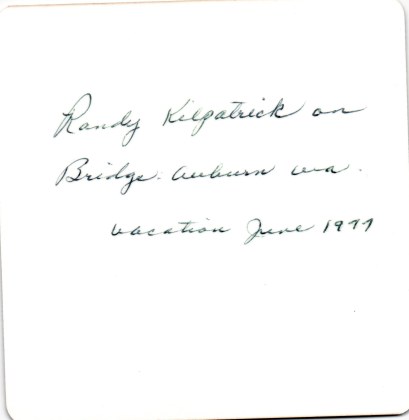 Randy Kilpatrick on
Bridge. Auburn wa.
vacation June 1977